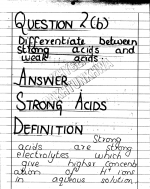 QUESTION 2(b)
Differentiate between
strong acids and
weak acids.
ANSWER
STRONG ACIDS
DEFINITION
Strong
acids are strong
electrolytes which
give higher concentr
ation of H+ ions
in aqueous solution.